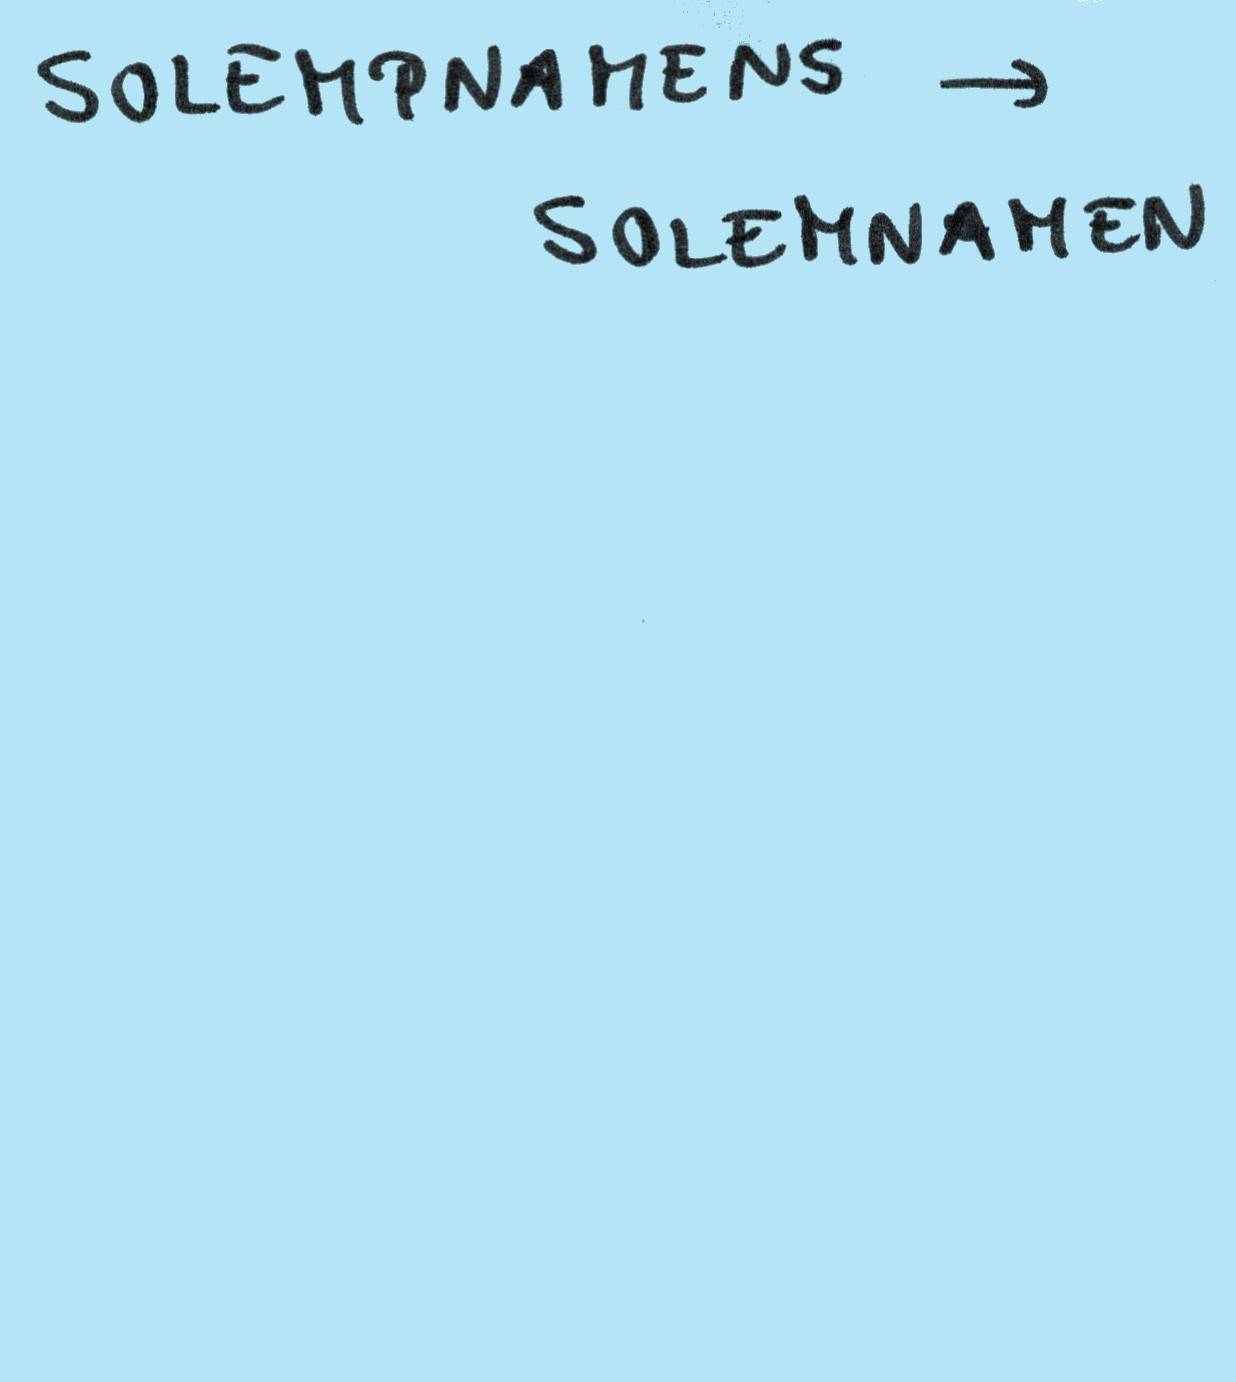 SOLEMPNAMENS →
SOLEMNAMEN